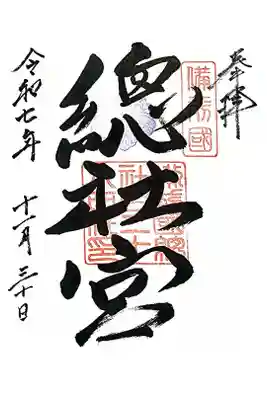 奉拝
備前國
總社宮
令和七年 十一月三十日